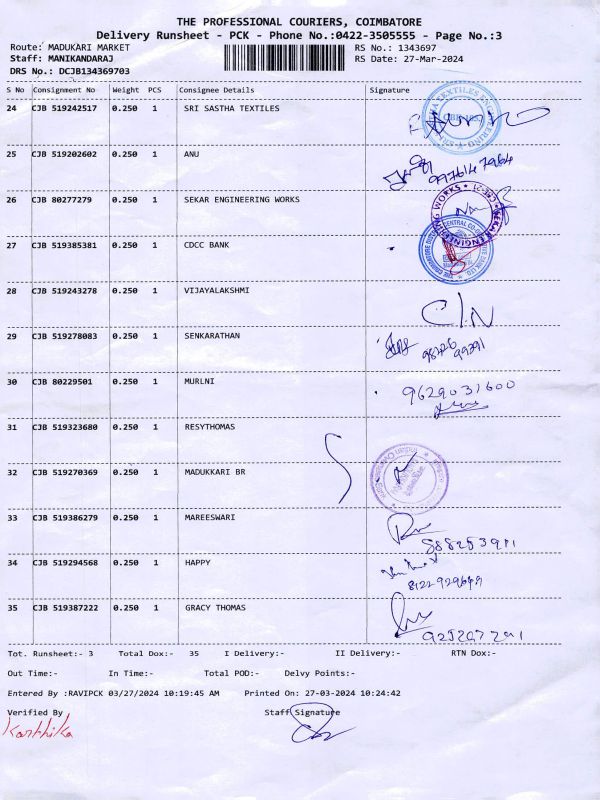 THE PROFESSIONAL COURIERS, COIMBATORE
Delivery Runsheet - PCK - Phone No.:0422-3505555 - Page No.:3
Route: MADUKARI MARKET RS No.: 1343697
Staff: MANIKANDARAJ RS Date: 27-Mar-2024
DRS No.: DCJB134369703
S No Consignment No Weight PCS Consignee Details Signature
24 CJB 519242517 0.250 1 SRI SASTHA TEXTILES
25 CJB 519202602 0.250 1 ANU
26 CJB 80277279 0.250 1 SEKAR ENGINEERING WORKS
27 CJB 519385381 0.250 1 CDCC BANK
28 CJB 519243278 0.250 1 VIJAYALAKSHMI
C/N
29 CJB 519278083 0.250 1 SENKARATHAN
30 CJB 80229501 0.250 1 MURLNI
9629031600
31 CJB 519323680 0.250 1 RESYTHOMAS
32 CJB 519270369 0.250 1 MADUKKARI BR
33 CJB 519386279 0.250 1 MAREESWARI
34 CJB 519294568 0.250 1 HAPPY
35 CJB 519387222 0.250 1 GRACY THOMAS
Tot. Runsheet:- 3 Total Dox:- 35 I Delivery:- II Delivery:- RTN Dox:-
Out Time:- In Time:- Total POD:- Delvy Points:-
Entered By :RAVIPCK 03/27/2024 10:19:45 AM Printed On: 27-03-2024 10:24:42
Verified By Staff Signature
Karthika